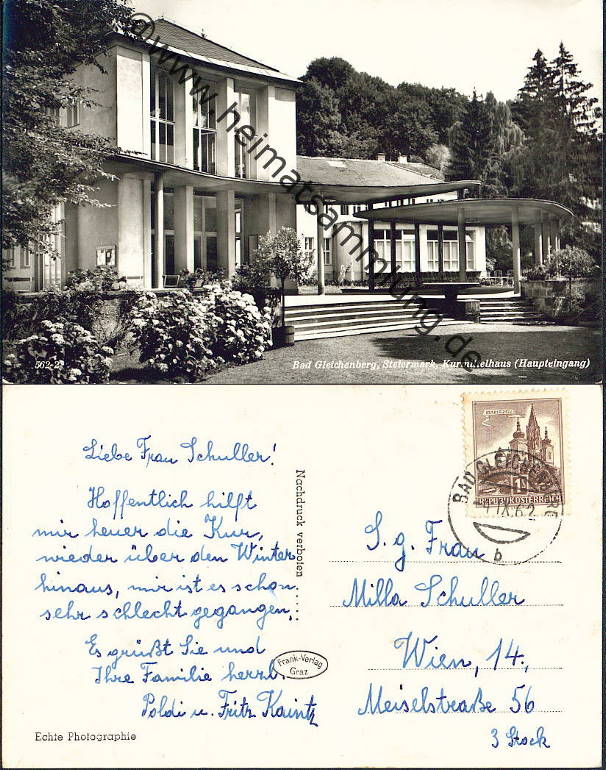 ©www.heimatsammlung.de
562-2
Bad Gleichenberg, Steiermark, Kurmittelhaus (Haupteingang)
Liebe Frau Schuller!
Hoffentlich hilft
mir heuer die Kur,
wieder über den Winter
hinaus, mir ist es schon
sehr schlecht gegangen.
Es grüßt Sie und
Ihre Familie herzl.
Poldi u. Fritz Kaintz
Echte Photographie
Nachdruck verboten
Frank-Verlag
Graz
REPUBLIK ÖSTERREICH
BAD GLEICHENBERG
IX. 62
b
S. g. Frau
Milla Schuller
Wien, 14.,
Meiselstraße 56
3 Stock